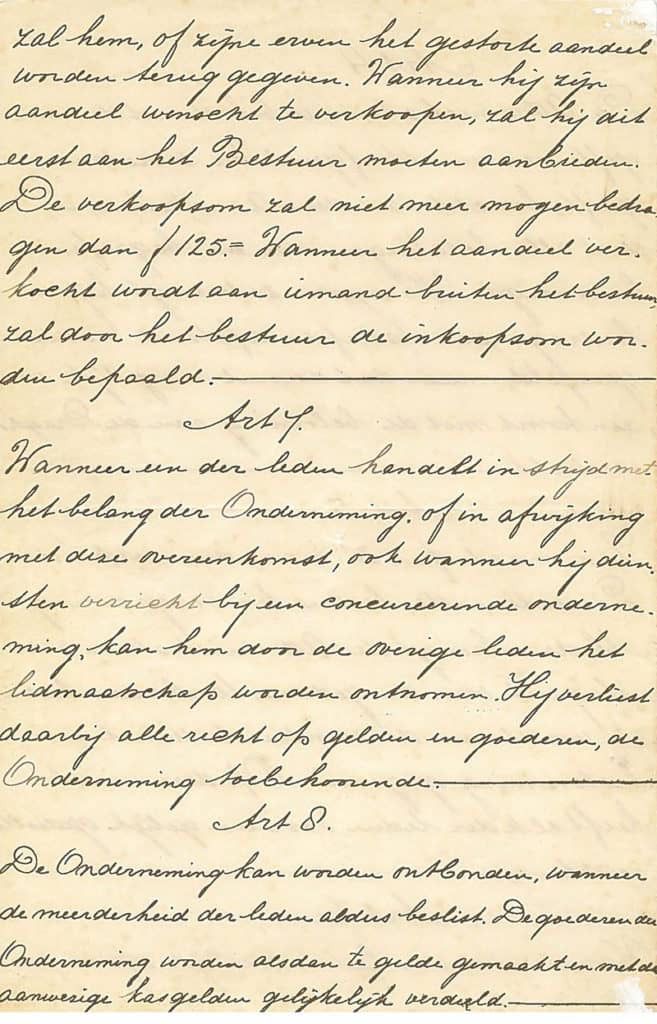 zal hem, of zijne erven het gestorte aandeel
worden terug gegeven. Wanneer hij zijn
aandeel wenscht te verkoopen, zal hij dit
eerst aan het Bestuur moeten aanbieden.
De verkoopsom zal niet meer mogen bedra-
gen dan f 125.= Wanneer het aandeel ver-
kocht wordt aan iemand buiten het bestuur,
zal door het bestuur de inkoopsom wor-
den bepaald.
Art 7.
Wanneer een der leden handelt in strijd met
het belang der Onderneming, of in afwijking
met deze overeenkomst, ook wanneer hij dien-
sten verricht bij een concureerende onderne-
ming, kan hem door de overige leden het
lidmaatschap worden ontnomen. Hij verliest
daarbij alle recht op gelden en goederen, de
Onderneming toebehoorende.
Art 8.
De Onderneming kan worden ontbonden, wanneer
de meerderheid der leden aldus beslist. De goederen der
Onderneming worden alsdan te gelde gemaakt en met de
aanwezige kasgelden gelijkelijk verdeeld.